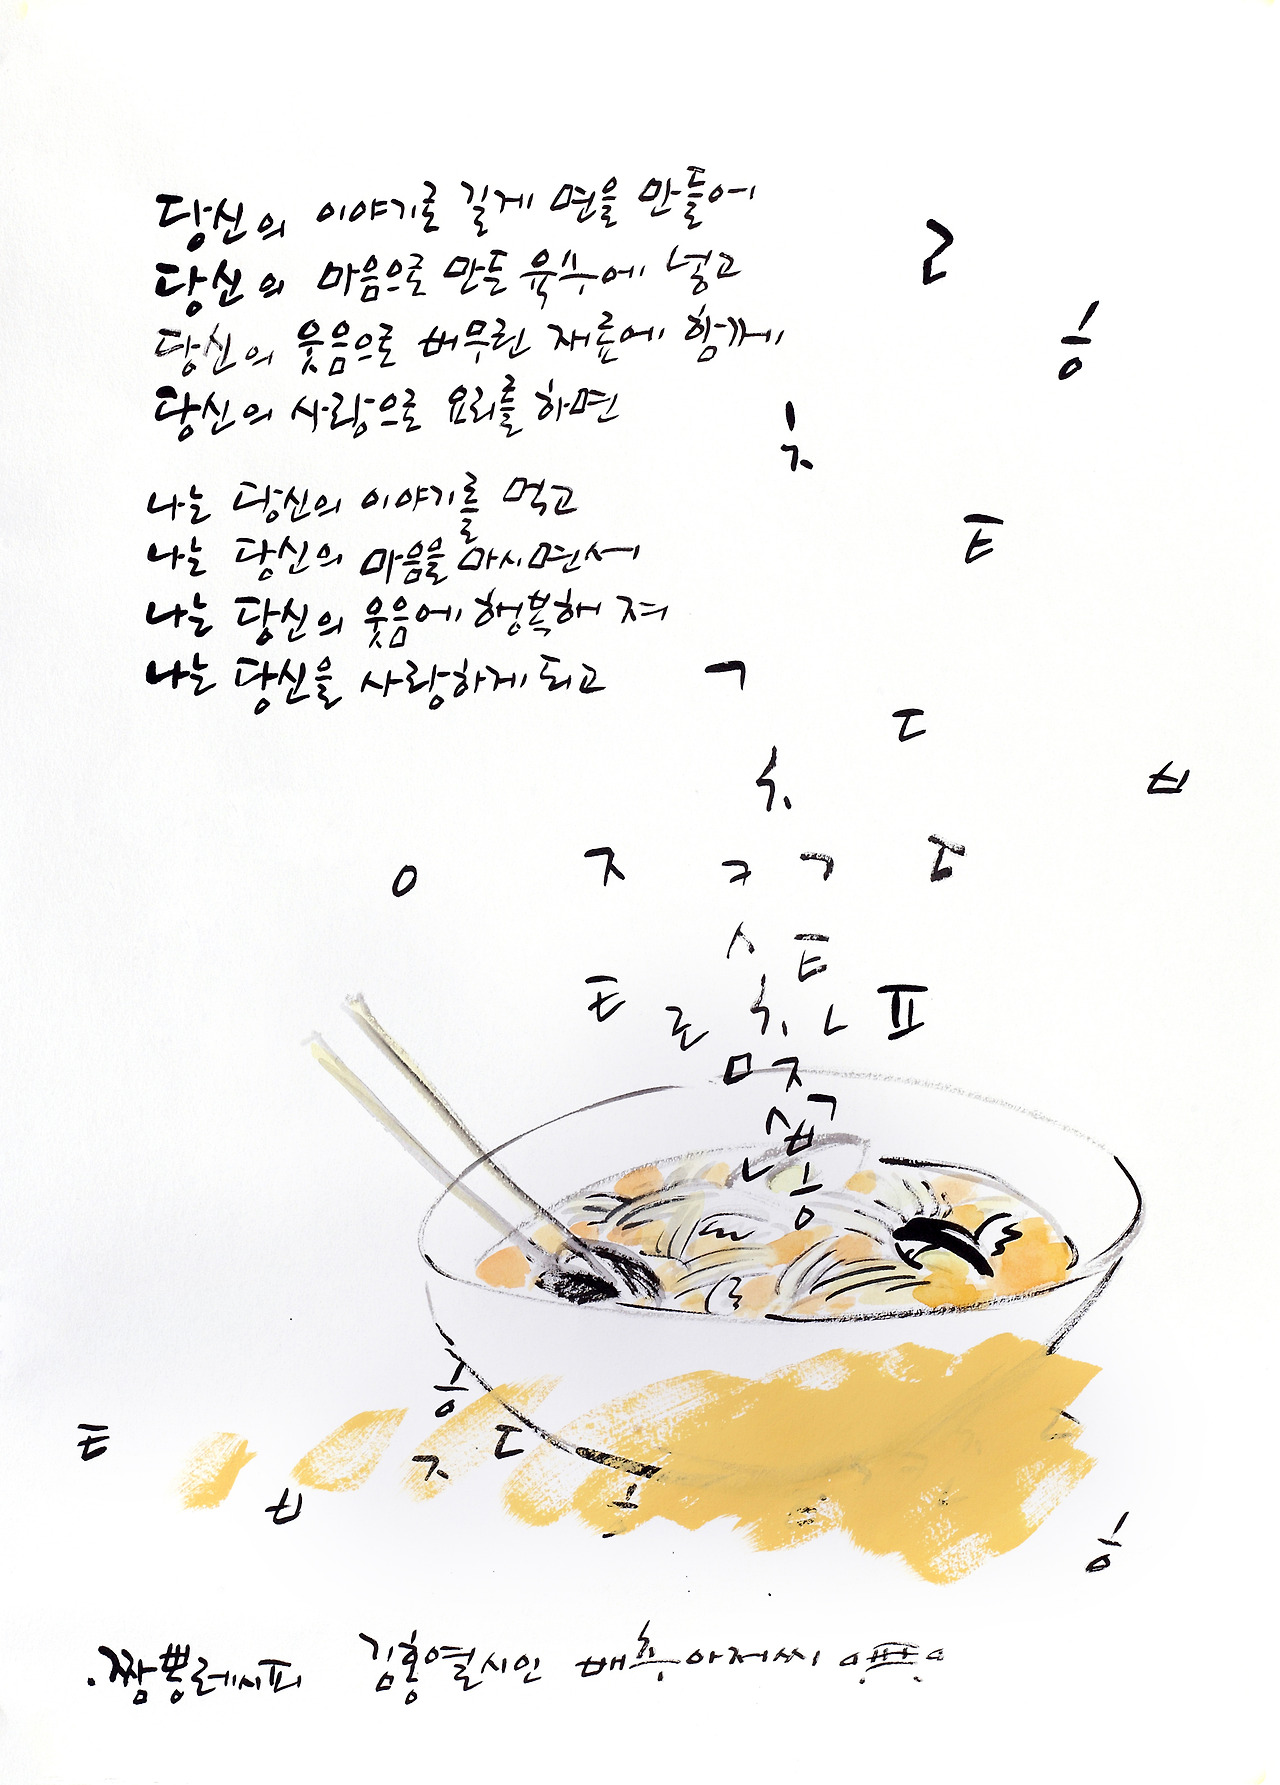 당신의 이야기로 길게 면을 만들어
당신의 마음으로 만든 육수에 넣고
당신의 웃음으로 버무린 재료에 함께
당신의 사랑으로 요리를 하면
나는 당신의 이야기를 먹고
나는 당신의 마음을 마시면서
나는 당신의 웃음에 행복해 져
나는 당신을 사랑하게 되고
ㄹ
ㅎ
ㅊ
ㅌ
ㄱ
ㄷ
ㅊ
ㅂ
ㅇ ㅈ ㅋ ㄱ ㄷ
ㅅ ㅌ
ㅌ ㄹ ㅊ ㄴ ㅍ
ㅁ ㅈ
ㅅ ㄱ
ㄴ ㅂ
ㅎ
ㅎ
ㅌ ㅈ ㄷ
ㅂ
ㅎ
.짬뽕레시피 김홍열시인 배추아저씨